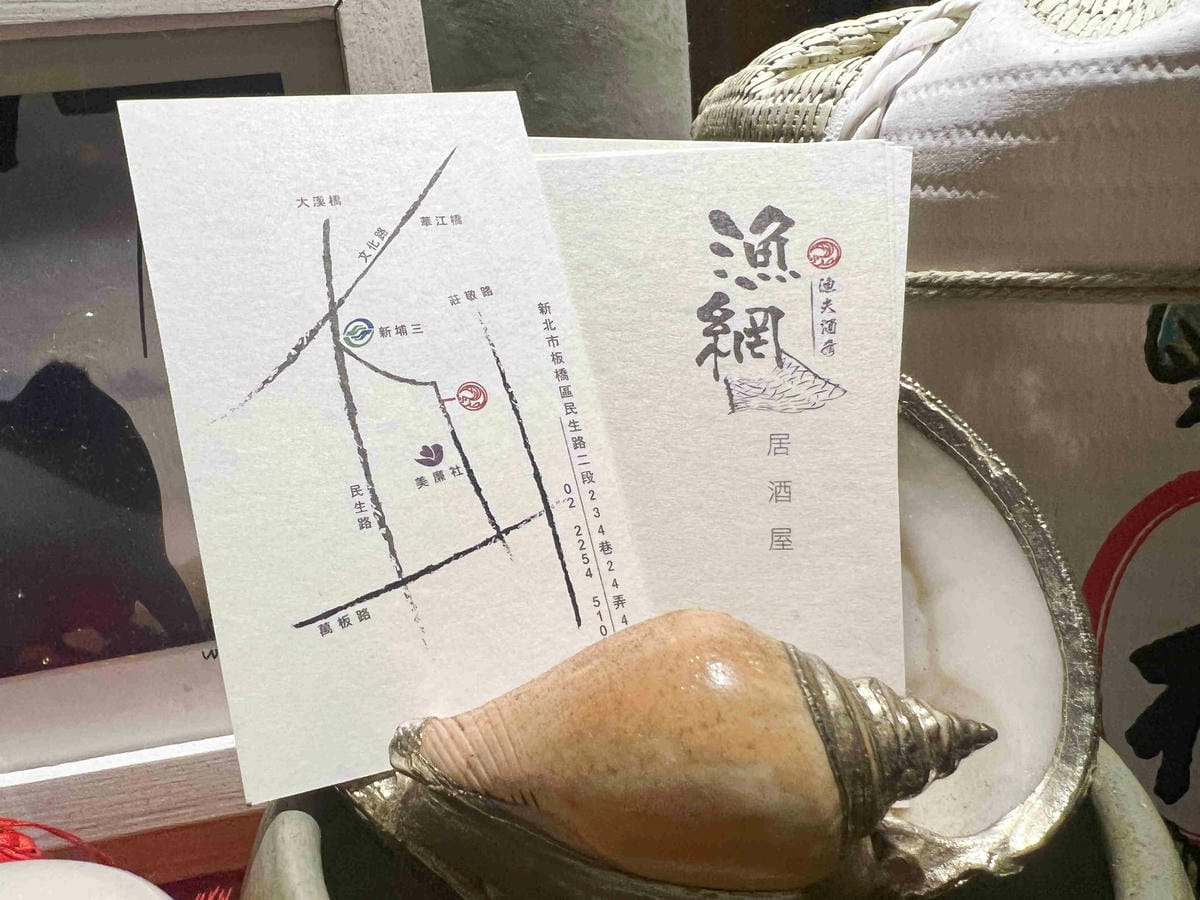 大漢橋
華江橋
文化路
莊敬路
新埔三
美廉社
民生路
萬板路
新北市板橋區民生路二段234巷24弄4
02 2254 510
漁網
漁夫酒房
居酒屋